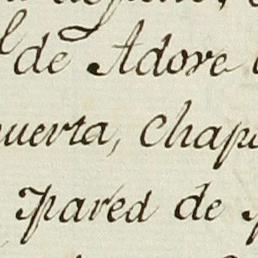 de Adore
puerta, Chap
Pared de